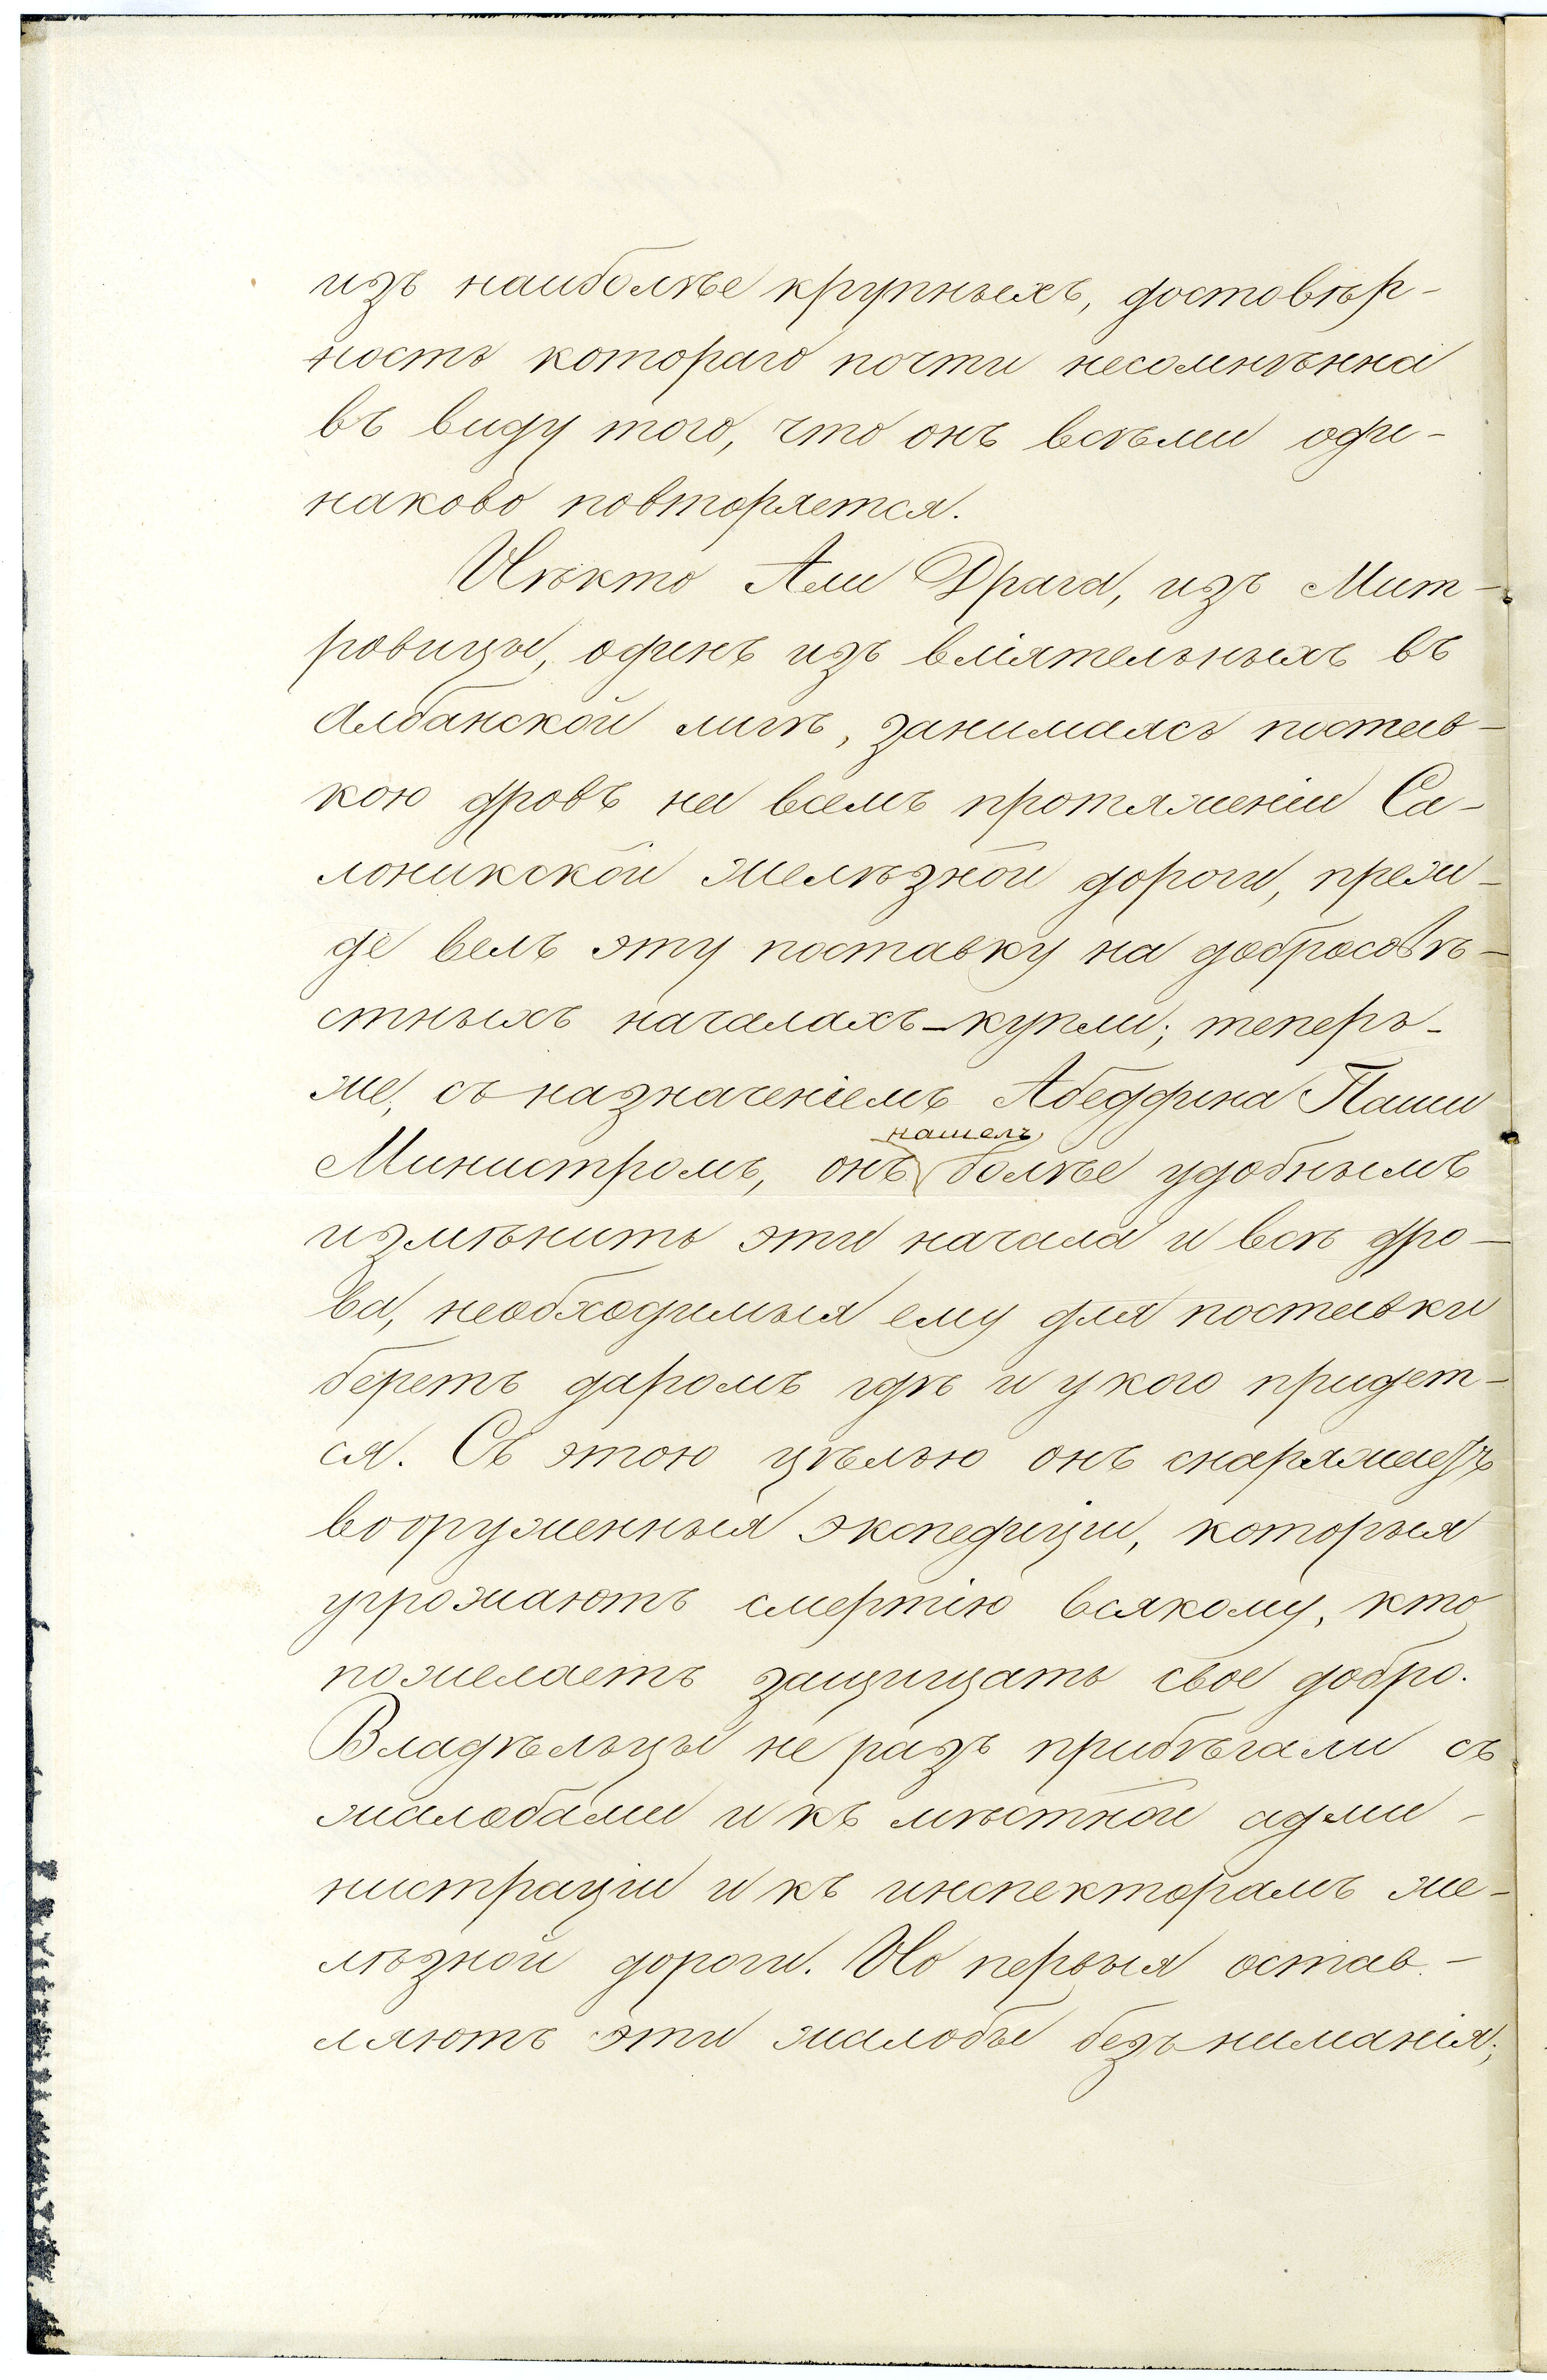 изъ наиболѣе крупныхъ, достовѣр-
ность котораго почти несомнѣнна
въ виду того, что онъ всѣми оди-
наково повторяется.
Нѣкто Али Драга, изъ Мит-
ровицы, одинъ изъ вліятельныхъ въ
Албанской лигѣ, занимаясь постав-
кою дровъ на всемъ протяженіи Са-
лоникской желѣзной дороги, преж-
де велъ эту поставку на добросовѣ-
стныхъ началахъ-купли; теперь-
же, съ назначеніемъ Абеддина Паши
нашелъ
Министромъ, онъ болѣе удобнымъ
измѣнить эти начала и всѣ дро-
ва, необходимыя ему для поставки
беретъ даромъ гдѣ и у кого придет-
ся. Съ этою цѣлью онъ снаряжаетъ
вооруженныя экспедиціи, которыя
угрожаютъ смертію всякому, кто
пожелаетъ защищать свое добро.
Владѣльцы не разъ прибѣгали съ
жалобами и къ мѣстной адми-
нистраціи и къ инспекторамъ же-
лѣзной дороги. Но первыя остав-
ляютъ эти жалобы безъ ниманія;